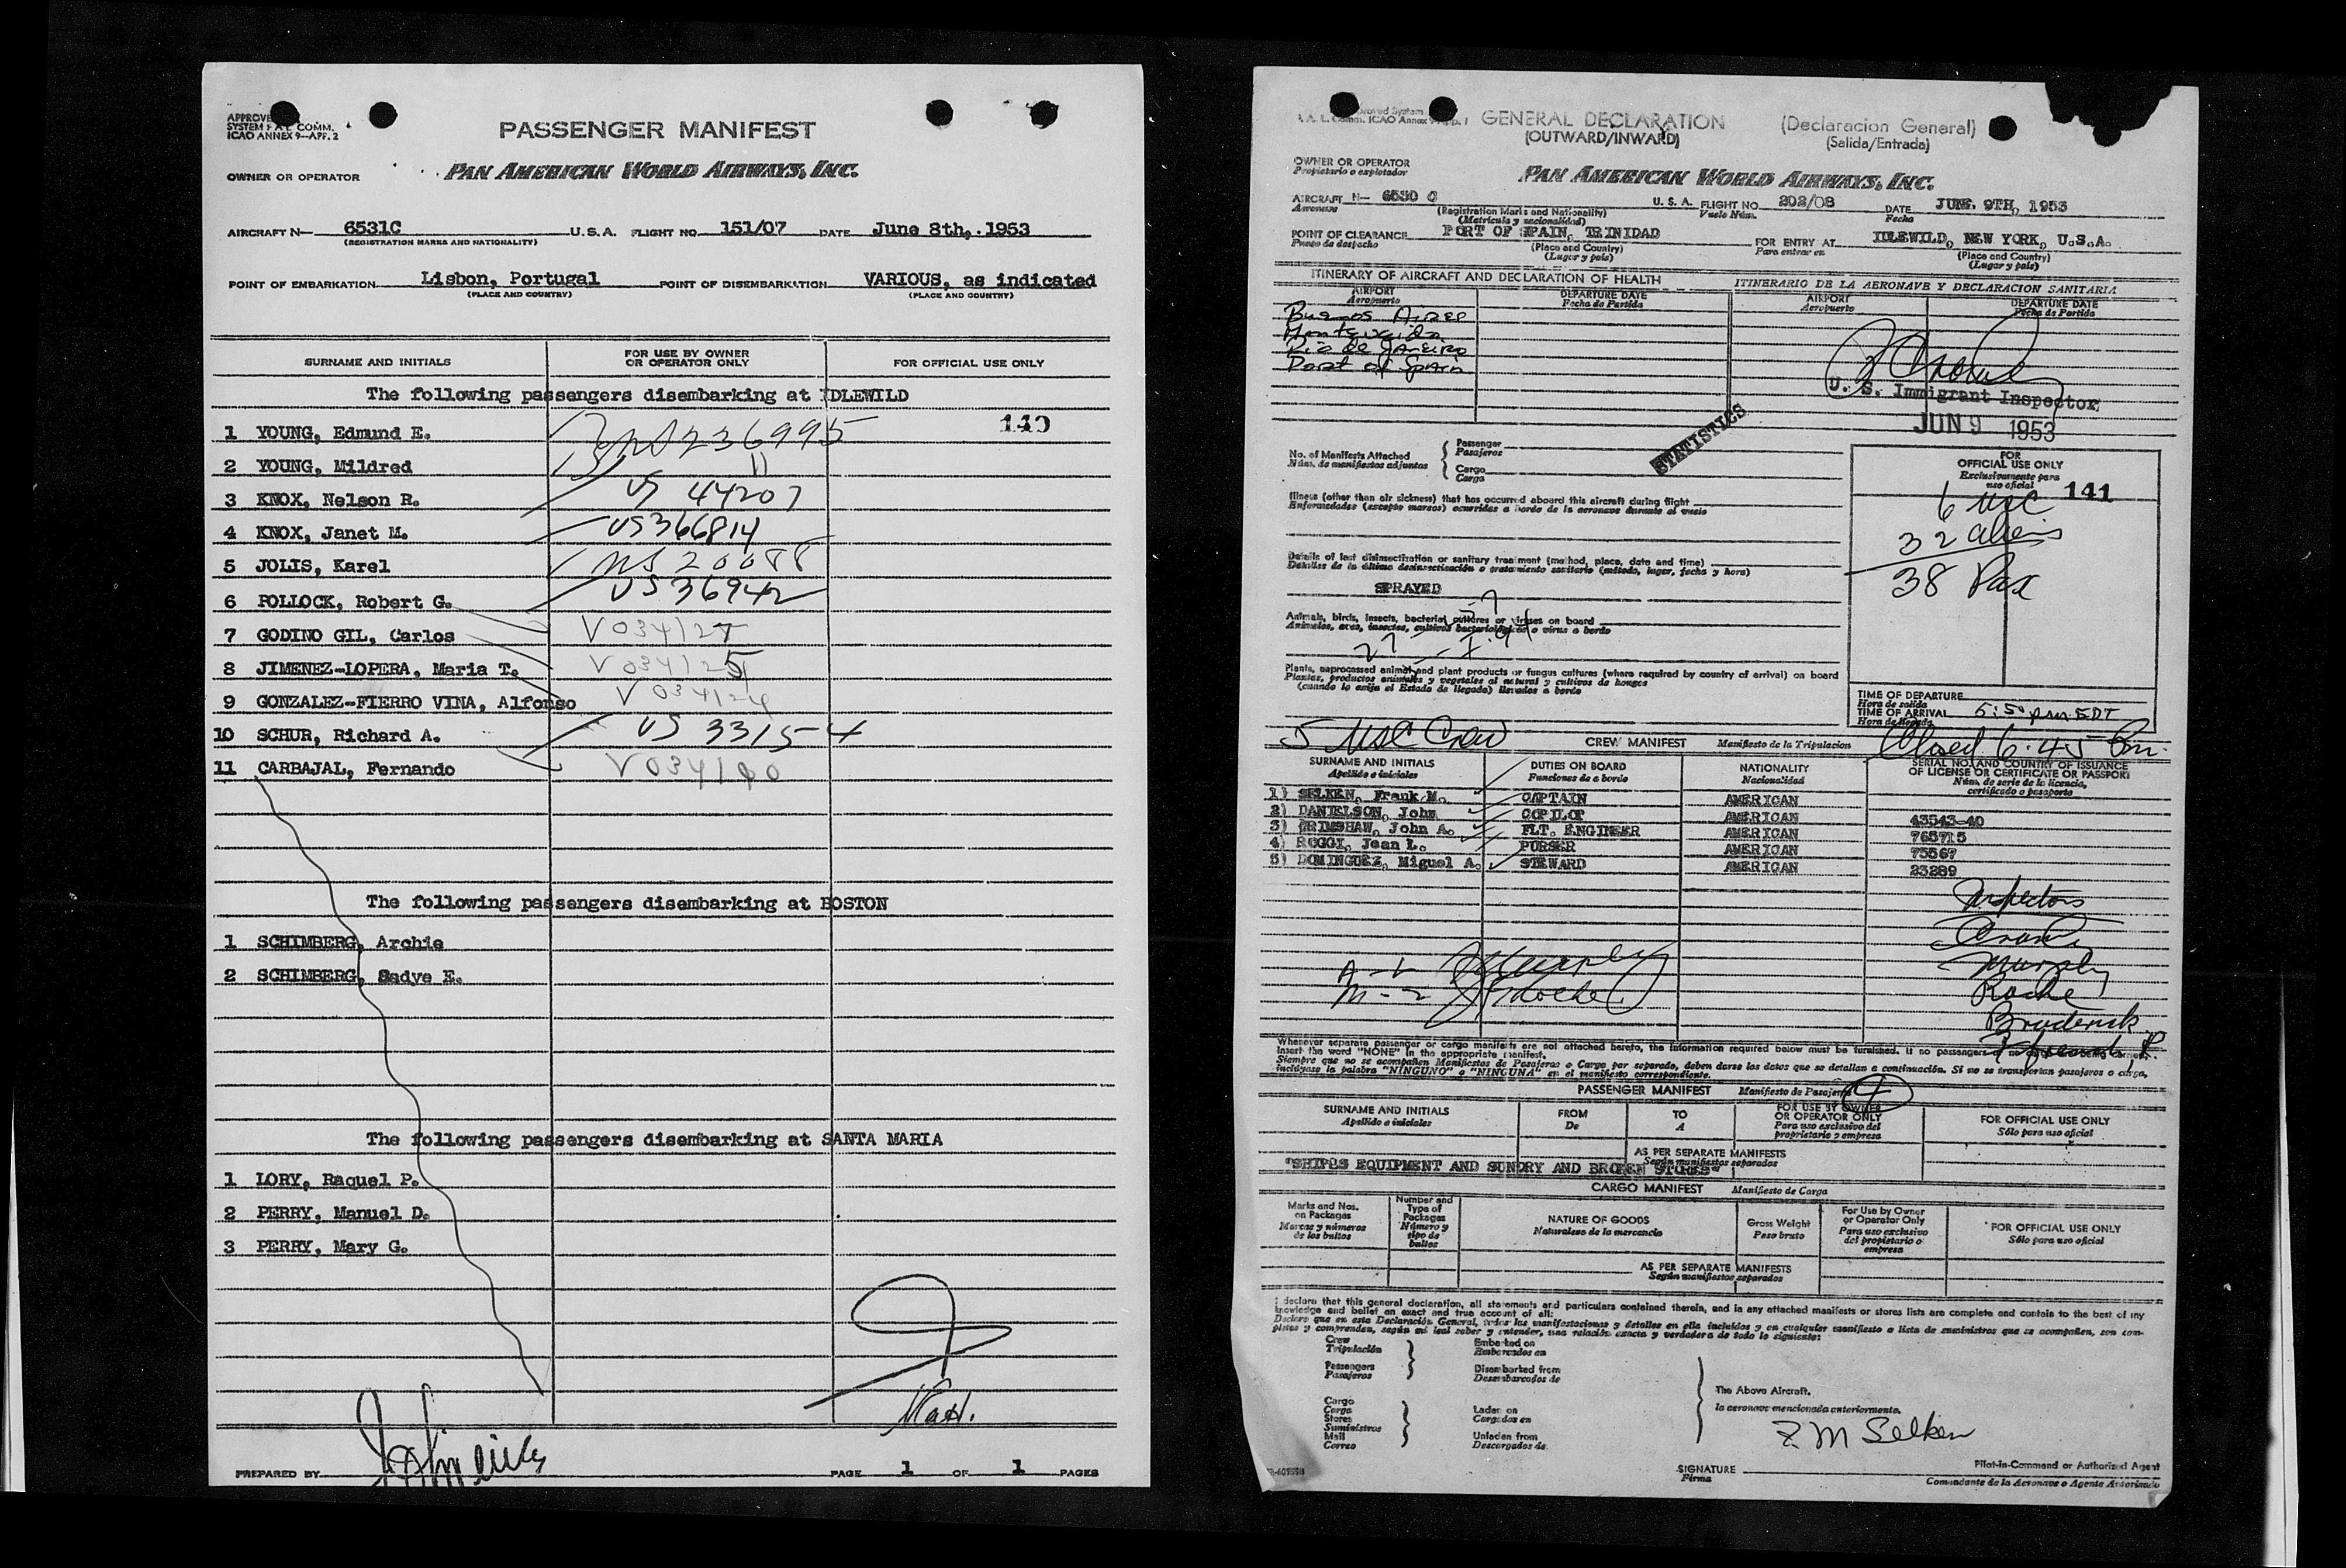 APPROVE
SYSTEM F A L COMM.
ICAO ANNEX 9—APP. 2
PASSENGER MANIFEST
OWNER OR OPERATOR PAN AMERICAN WORLD AIRWAYS, INC.
AIRCRAFT N— 6531C U.S.A. FLIGHT NO. 151/07 DATE June 8th, 1953
(REGISTRATION MARKS AND NATIONALITY)
POINT OF EMBARKATION Lisbon, Portugal POINT OF DISEMBARKATION VARIOUS, as indicated
(PLACE AND COUNTRY) (PLACE AND COUNTRY)
SURNAME AND INITIALS FOR USE BY OWNER OR OPERATOR ONLY FOR OFFICIAL USE ONLY
The following passengers disembarking at IDLEWILD
140
1 YOUNG, Edmund E. 236995
2 YOUNG, Mildred "
3 KNOX, Nelson R. US 44207
4 KNOX, Janet M. US366814
5 JOLIS, Karel 20088
6 POLLOCK, Robert G. US36942
7 GODINO GIL, Carlos
8 JIMENEZ-LOPERA, Maria T.
9 GONZALEZ-FIERRO VINA, Alfonso V 034124
10 SCHUR, Richard A. US 33154
11 CARBAJAL, Fernando
The following passengers disembarking at BOSTON
1 SCHIMBERG, Archie
2 SCHIMBERG, Sadye E.
The following passengers disembarking at SANTA MARIA
1 LORY, Raquel P.
2 PERRY, Manuel D.
3 PERRY, Mary G.
PREPARED BY
PAGE 1 OF 1 PAGES
GENERAL DECLARATION (Declaracion General)
(OUTWARD/INWARD) (Salida/Entrada)
OWNER OR OPERATOR
Propietario o explotador
PAN AMERICAN WORLD AIRWAYS, INC.
AIRCRAFT N— 6530 C U. S. A. FLIGHT NO. 202/08 DATE JUNE. 9TH, 1953
Aeronave (Registration Marks and Nationality) Vuelo Núm. Fecha
(Matrícula y nacionalidad)
POINT OF CLEARANCE PORT OF SPAIN, TRINIDAD FOR ENTRY AT IDLEWILD, NEW YORK, U.S.A.
Punto de despacho (Place and Country) Para entrar en (Place and Country)
(Lugar y país) (Lugar y país)
ITINERARY OF AIRCRAFT AND DECLARATION OF HEALTH ITINERARIO DE LA AERONAVE Y DECLARACION SANITARIA
AIRPORT DEPARTURE DATE AIRPORT DEPARTURE DATE
Aeropuerto Fecha de Partida Aeropuerto Fecha de Partida
Buenos Aires
Montevideo
Rio de Janeiro
Port of Spain
U. S. Immigrant Inspector
JUN 9 1953
STATISTICS
No. of Manifests Attached
Núm. de manifiestos adjuntos
Passenger
Pasajeros
Cargo
Carga
FOR OFFICIAL USE ONLY
Exclusivamente para uso oficial
141
6 USC
32 aliens
38 Pax
Illness (other than air sickness) that has occurred aboard this aircraft during flight
Enfermedades (excepto mareos) ocurridas a bordo de la aeronave durante el vuelo
Details of last disinsectization or sanitary treatment (method, place, date and time)
Detalles de la última desinsectización o tratamiento sanitario (método, lugar, fecha y hora)
SPRAYED
Animals, birds, insects, bacterial cultures or viruses on board
Animales, aves, insectos, cultivos bacteriológicos o virus a bordo
Plants, unprocessed animal and plant products or fungus cultures (where required by country of arrival) on board
Plantas, productos animales y vegetales al natural y cultivos de hongos
(cuando lo exija el Estado de llegada) llevados a bordo
TIME OF DEPARTURE
Hora de salida
TIME OF ARRIVAL 5:50 pm EDT
Hora de llegada
5 USC Crew CREW MANIFEST Manifiesto de la Tripulacion Closed 6:45 Pm.
SURNAME AND INITIALS DUTIES ON BOARD NATIONALITY SERIAL NO. AND COUNTRY OF ISSUANCE OF LICENSE OR CERTIFICATE OR PASSPORT
Apellido e iniciales Funciones de a bordo Nacionalidad Núm. de serie de la licencia, certificado o pasaporte
1) SELKEN, Frank M. CAPTAIN AMERICAN 43543-40
2) DANIELSON, John COPILOT AMERICAN 765715
3) GRIMSHAW, John A. FLT. ENGINEER AMERICAN 75567
4) ROGGI, Jean L. PURSER AMERICAN 23289
5) DOMINGUEZ, Miguel A. STEWARD AMERICAN
Inspectors
Murphy
Roche
Broderick
Whenever separate passenger or cargo manifests are not attached hereto, the information required below must be furnished. If no passengers
Insert the word "NONE" in the appropriate manifest.
Siempre que no se acompañen Manifiestos de Pasajeros o Carga por separado, deben darse los datos que se detallan a continuación. Si no se transportan pasajeros o carga,
inclúyase la palabra "NINGUNO" o "NINGUNA" en el manifiesto correspondiente.
PASSENGER MANIFEST Manifiesto de Pasajeros
SURNAME AND INITIALS FROM TO FOR USE BY OWNER OR OPERATOR ONLY FOR OFFICIAL USE ONLY
Apellido e iniciales De A Para uso exclusivo del propietario y empresa Sólo para uso oficial
AS PER SEPARATE MANIFESTS
Según manifiestos separados
"SHIP'S EQUIPMENT AND SUNDRY AND BROKEN STORES"
CARGO MANIFEST Manifiesto de Carga
Marks and Nos. on Packages Number and Type of Packages NATURE OF GOODS Gross Weight For Use by Owner or Operator Only FOR OFFICIAL USE ONLY
Marcas y números de los bultos Número y tipo de bultos Naturaleza de la mercancía Peso bruto Para uso exclusivo del propietario o empresa Sólo para uso oficial
AS PER SEPARATE MANIFESTS
Según manifiestos separados
I declare that this general declaration, all statements and particulars contained therein, and in any attached manifests or stores lists are complete and contain to the best of my
knowledge and belief an exact and true account of all:
Declaro que en esta Declaración General, todas las manifestaciones y detalles en ella incluidos y en cualquier manifiesto o lista de suministros que se acompañen, son com-
pletos y comprenden, según mi leal saber y entender, una relación exacta y verdadera de todo lo siguiente:
Crew Embarked on
Tripulación Embarcados en
Passengers Disembarked from
Pasajeros Desembarcados de
The Above Aircraft.
la aeronave mencionada anteriormente.
Cargo
Carga
Stores Laden on
Suministros Cargados en
Mail Unladen from
Correo Descargados de
F M Selken
SIGNATURE
Firma
Pilot-in-Command or Authorized Agent
Comandante de la Aeronave o Agente Autorizado